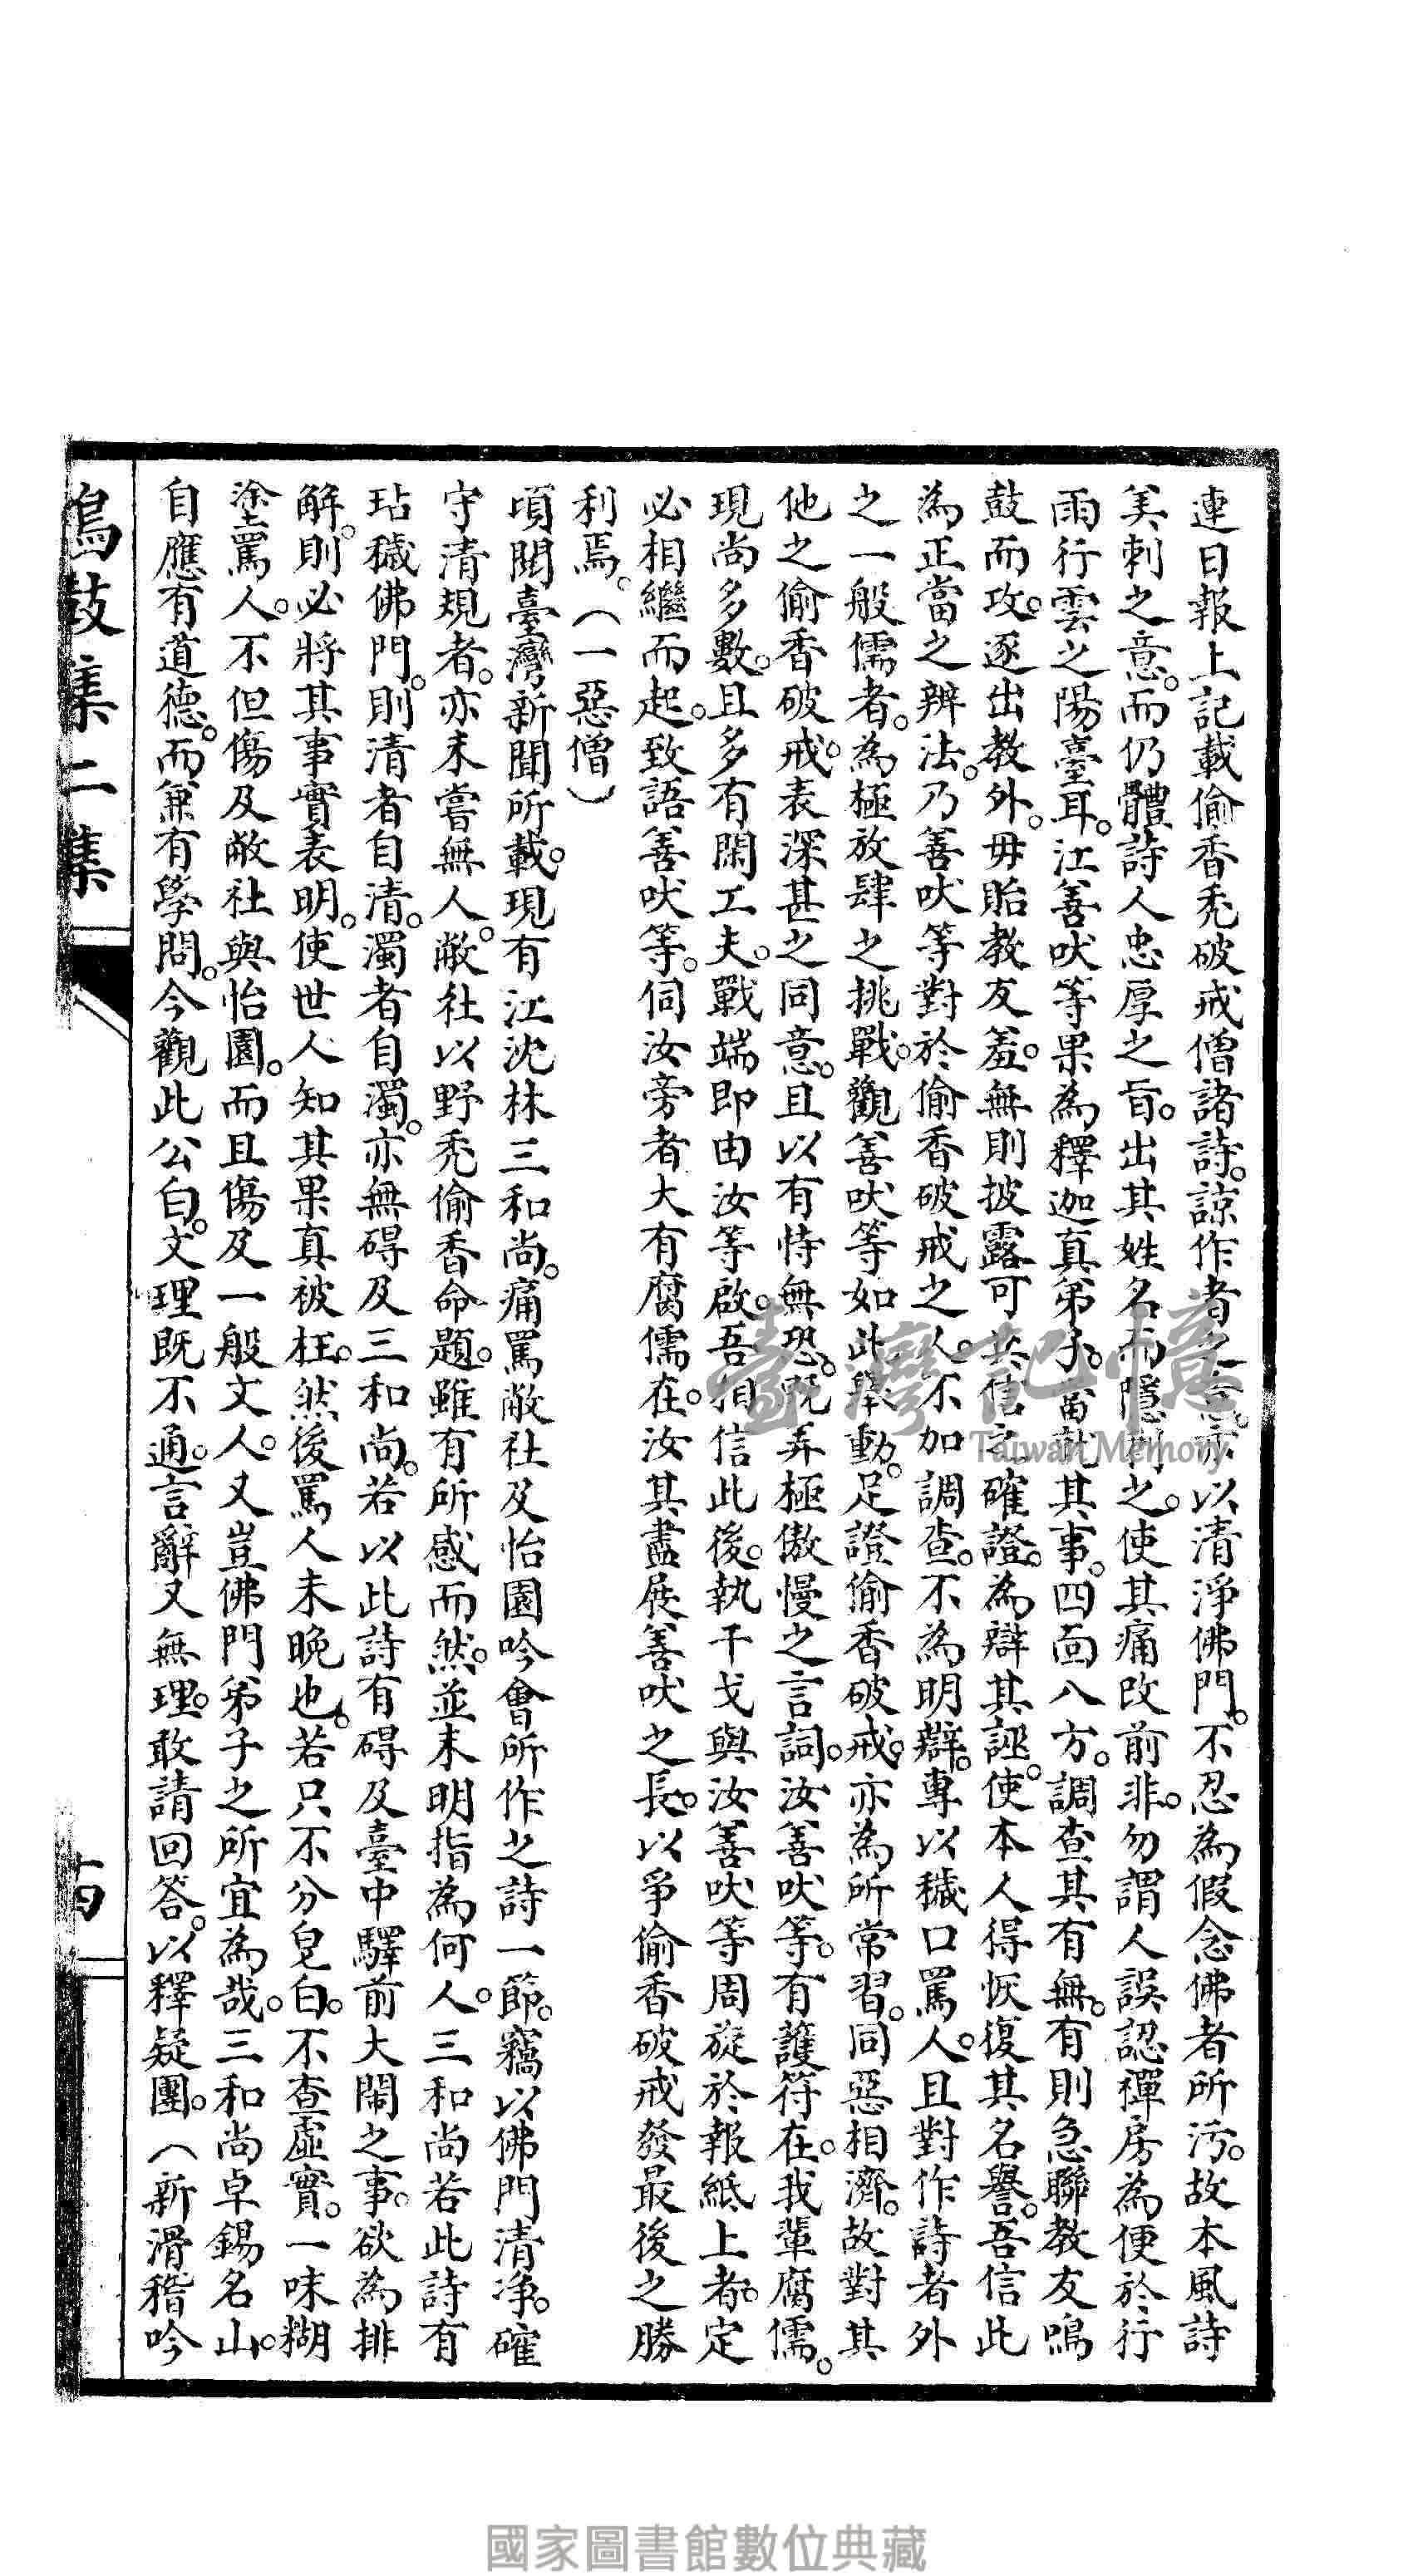 連日報上記載偷香禿破戒僧諸詩。諒作者之意。亦以清淨佛門。不忍為假念佛者所污。故本風詩
美刺之意。而仍體詩人忠厚之旨。出其姓名而隱刺之。使其痛改前非。勿謂人誤認禪房為便於行
雨行雲之陽臺耳。江善吠等果為釋迦真弟子。當就其事。四面八方。調查其有無。有則急聯教友鳴
鼓而攻。逐出教外。毋貽教友羞。無則披露可共信之確證。為辯其誣。使本人得恢復其名譽。吾信此
為正當之辨法。乃善吠等對於偷香破戒之人。不加調查。不為明辯。專以穢口罵人。且對作詩者外
之一般儒者。為極放肆之挑戰。觀善吠等如此舉動。足證偷香破戒。亦為所常習。同惡相濟。故對其
他之偷香破戒。表深甚之同意。且以有恃無恐。既弄極傲慢之言詞。汝善吠等。有護符在。我輩腐儒。
現尚多數。且多有閑工夫。戰端即由汝等啟。吾相信此後。執干戈與汝善吠等周旋於報紙上者。定
必相繼而起。致語善吠等。伺汝旁者大有腐儒在。汝其盡展善吠之長。以爭偷香破戒發最後之勝
利焉。（一惡僧）
頃閱臺灣新聞所載。現有江沈林三和尚。痛罵敝社及怡園吟會所作之詩一節。竊以佛門清净。確
守清規者。亦未嘗無人。敝社以野禿偷香命題。雖有所感而然。並未明指為何人。三和尚若此詩有
玷穢佛門。則清者自清。濁者自濁。亦無碍及三和尚。若以此詩有碍及臺中驛前大鬧之事。欲為排
解。則必將其事實表明。使世人知其果真被枉。然後罵人未晚也。若只不分皂白。不查虛實。一味糊
塗罵人。不但傷及敝社與怡園。而且傷及一般文人。又豈佛門弟子之所宜為哉。三和尚卓錫名山。
自應有道德。而兼有學問。今觀此公白。文理既不通。言辭又無理。敢請回答。以釋疑團。（新滑稽吟
鳴鼓集二集
十四
臺灣記憶
Taiwan Memory
國家圖書館數位典藏